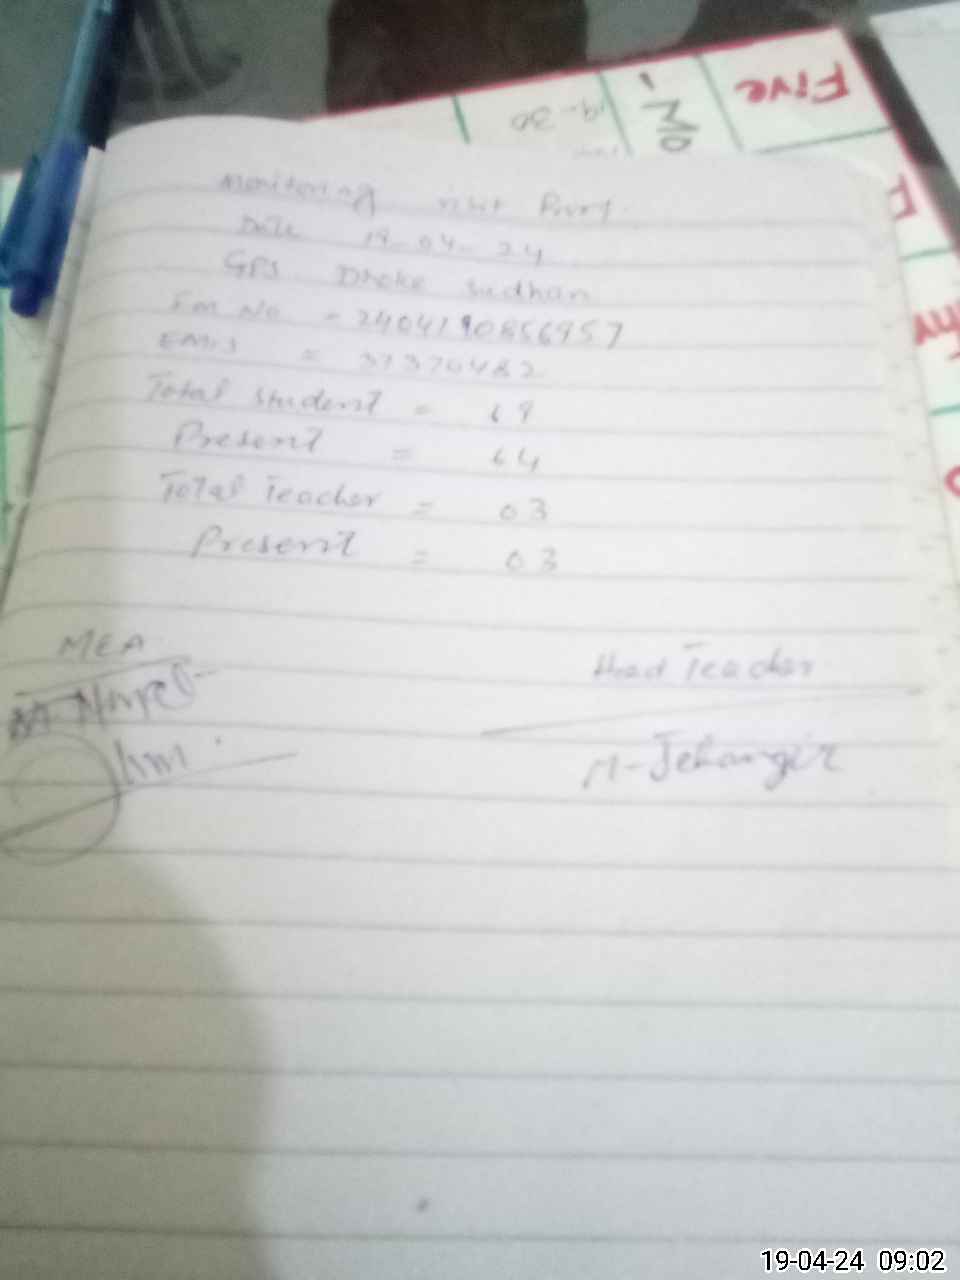 Monitoring visit Proof
Date 19-04-24
GPS Dhoke Sudhan
Em No = 2404190856957
EMIS = 37370482
Total Student = 69
Present = 64
Total Teacher = 03
Present = 03
MEA
Head Teacher
M-Jehangir
Five
19-04-24 09:02